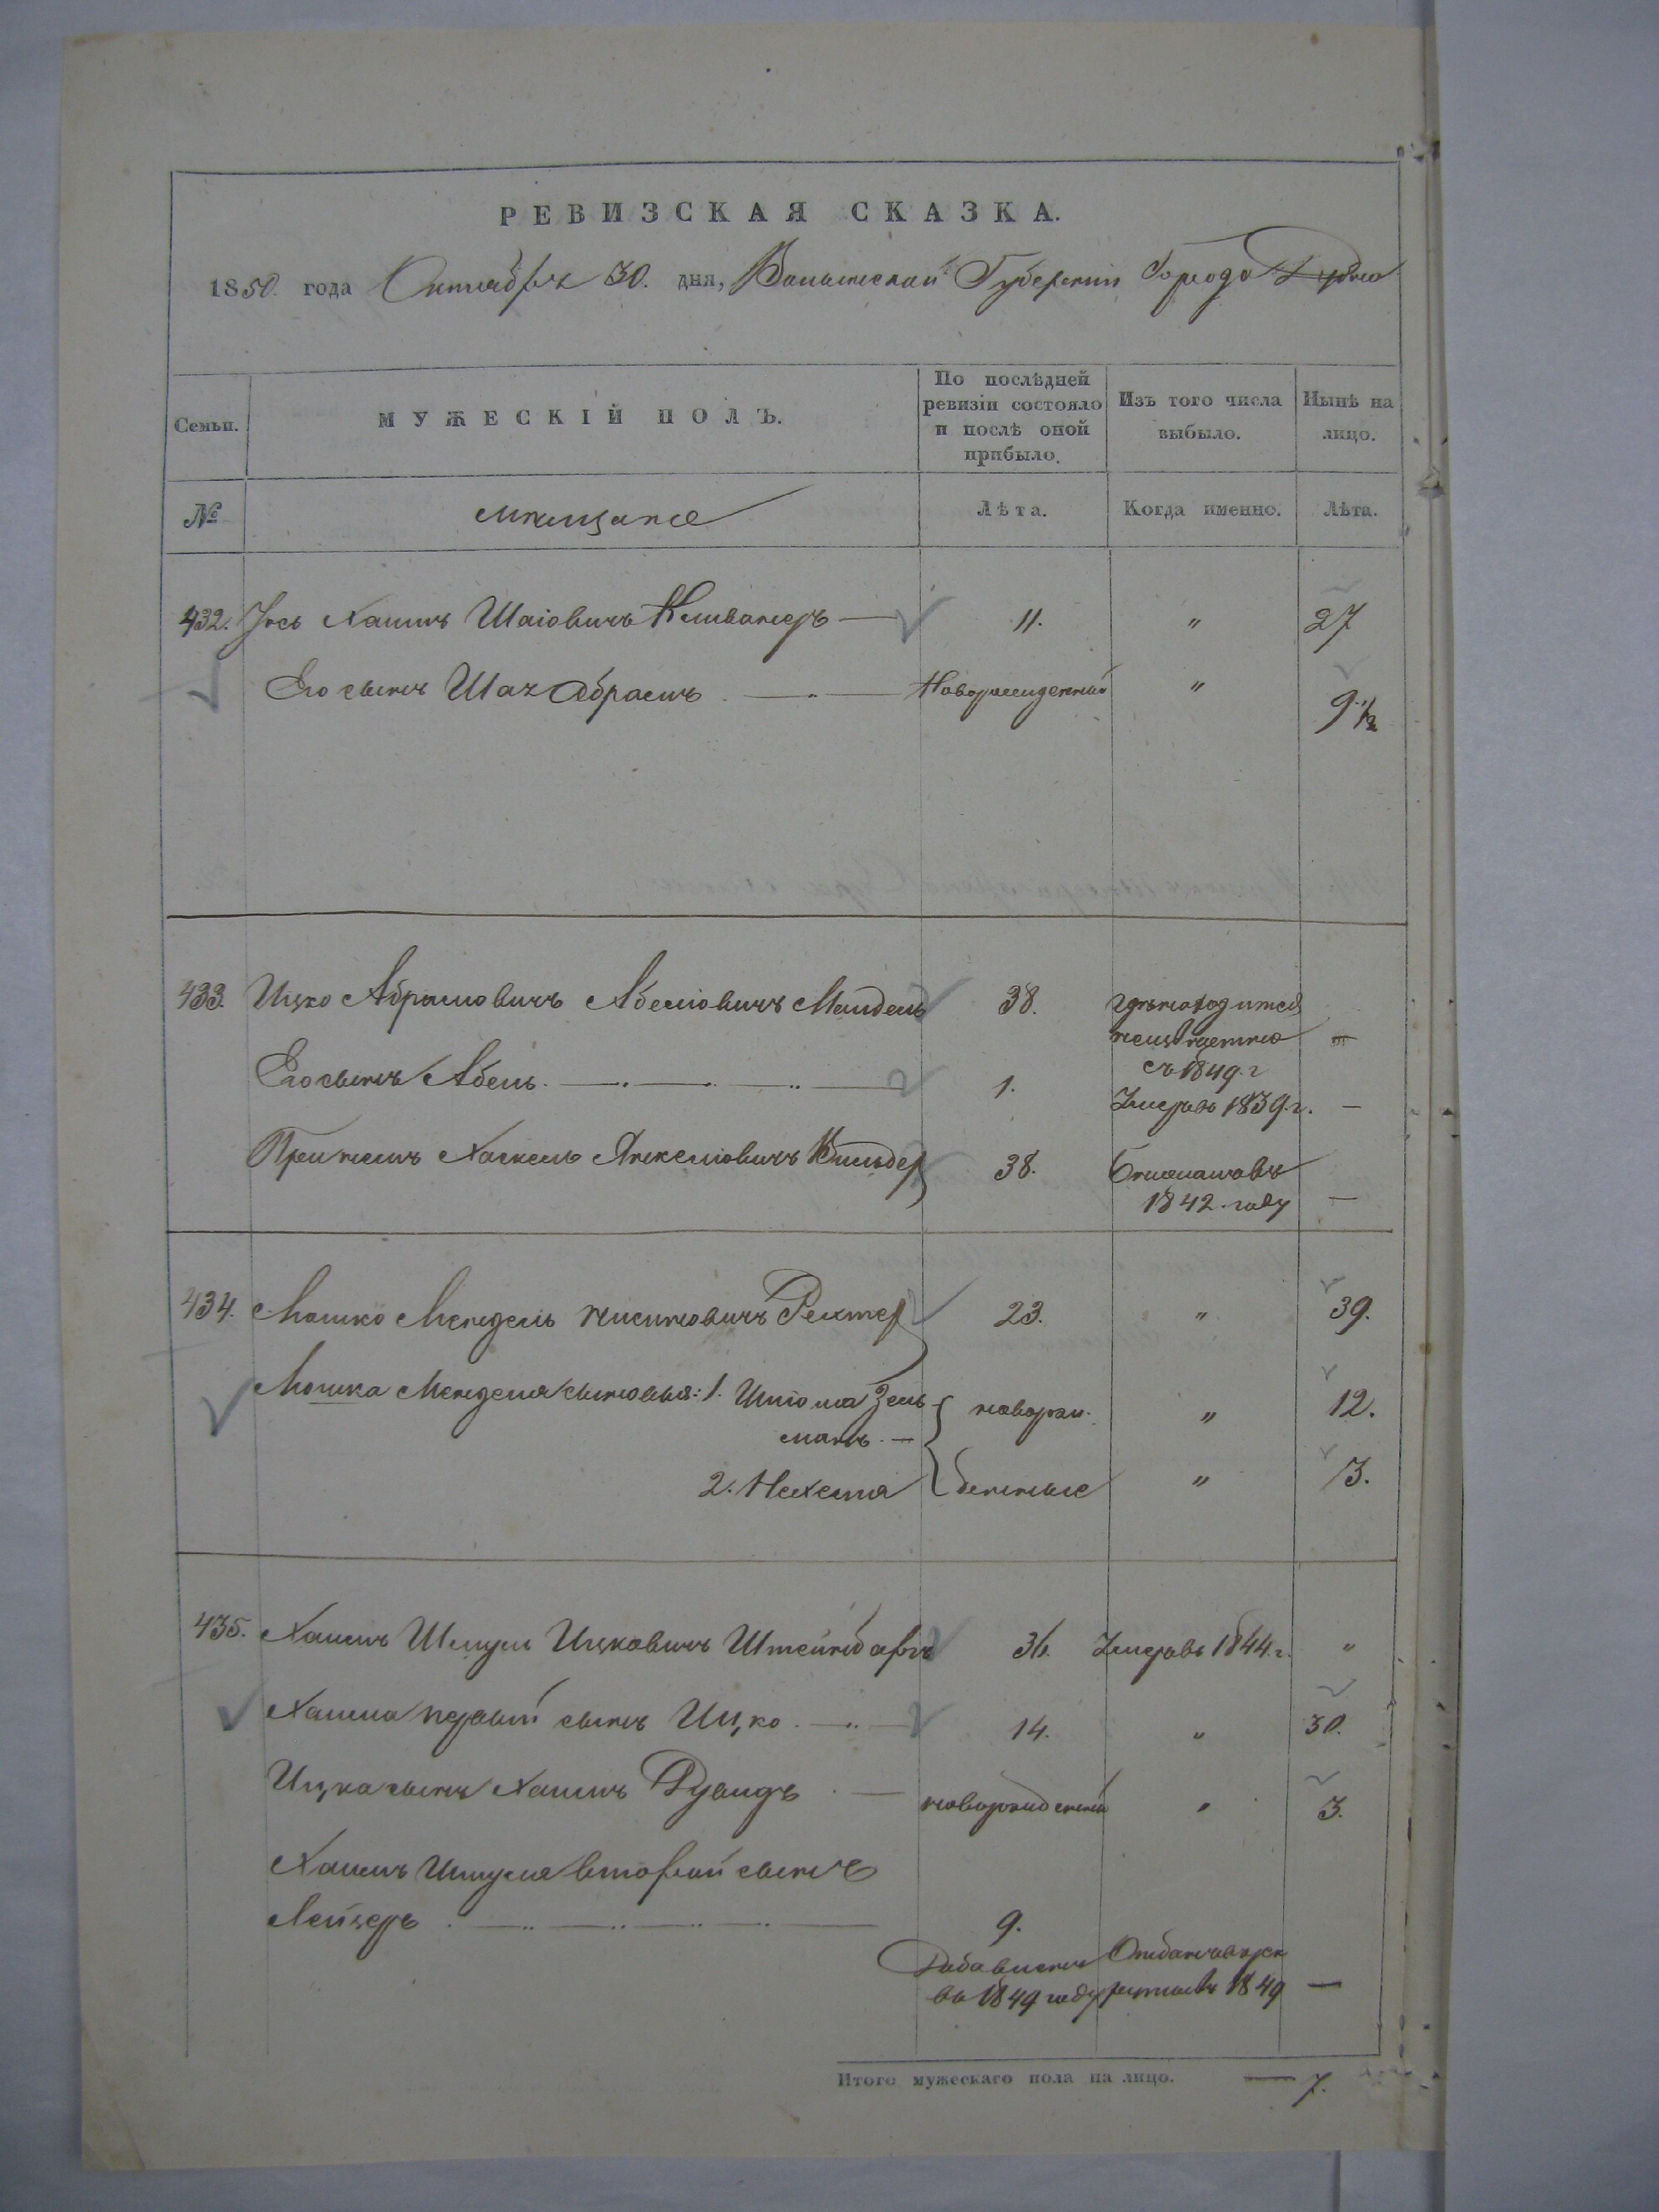 РЕВИЗСКАЯ СКАЗКА.
1850 года Октября 30. дня, Волынской Губерніи Города Дубно
Семьи.
МУЖЕСКІЙ ПОЛЪ.
По послѣдней
ревизіи состояло
и послѣ оной
прибыло.
Изъ того числа
выбыло.
Нынѣ на
лицо.
№
мѣщане
Лѣта.
Когда именно.
Лѣта.
432. Іось Хаимъ Шаіовичъ — 11. " 27
Его сынъ Шая Абрамъ — " — Новорожденный " 9 1/2
433. Ицко Абрамовичъ Абеліовичъ Мандель 38. гдѣ находится
неизвѣстно —
съ 1849. г
Его сынъ Абель. — 1.
Умеръ въ 1839. г. —
Хаскель 38.
1842. году —
434. Мошко Мендель Нисиновичъ Рехтер 23. " 39.
Мошка Менделя сыновья: 1. Зель- новорож- " 12.
манъ. —
2. Нехемія денные " 3.
435. Хаимъ Шмуль Ицковичъ Штейнбаргъ 36. Умеръ въ 1844. г. "
Хаима первый сынъ Ицко. — " — 14. " 30.
Ицка сынъ Хаимъ Дувидъ. — новорожденный " 3.
Хаимъ Шмуля второй сынъ
Лейзеръ. — 9.
Добавленъ Отданъ въ рек
въ 1849 году руты въ 1849 —
Итого мужескаго пола на лицо. — 7.